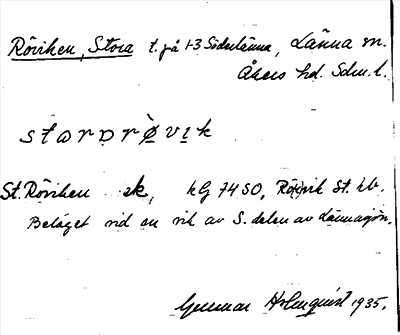 Röviken, Stora t. på 1-3 Söderlänna, Länna sn.
Åkers hd. Sdm. l.
stɑrɒrø̀vɪk
St. Röviken ek, kG 7450, Rö(k)vik St. kb.
Beläget vid en vik av S. delen av Lännasjön.
Gunnar Holmquist 1935.